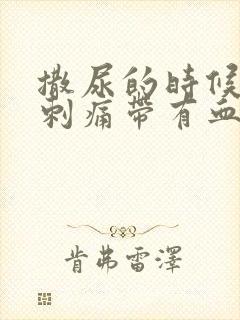 撒尿的時候
刺痛帶有血
肯弗雷澤